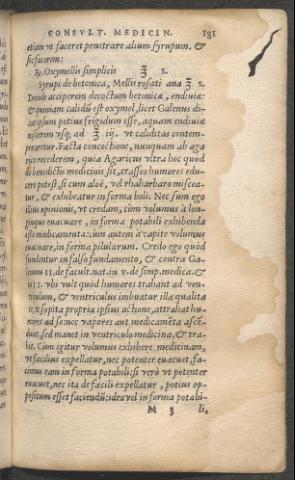 CONSVLT. MEDICIN. 191
etiam vt faceret penetrare alium syrupum. &
sic facerem:
℞. Oxymellis simplicis ℥ s.
Syrupi de betonica, Mellis rosati ana ℥ s.
acciperem decoctum betonicæ, endiuiæ:
& quoniam calidũ est oxymel, licet Galenus di-
cat ipsum potius frigidum esse, aquam endiuiæ
vsq; ad ℥ iij. vt caliditas contem-
peraretur. Facta concoctione, nunquam ab aga
rico recederem, quia Agaricus vltra hoc quòd
de benedictis medicinis sit, crassos humores edu-
cere potest, si cum aloë, vel rhabarbaro miscea-
tur, & exhibeatur in forma boli. Nec sum ego
illius opinionis, vt credam, cùm volumus à lon-
ginquo euacuare, in forma potabili exhibenda
esse medicamenta: cùm autem à capite volumus
euacuare, in forma pilularum. Credo ego quòd
fundentur in falso fundamento, & contra Ga-
lenum 11. de facult. nat. in v. de simp. medica. &
viii. vbi vult quòd humores trahant ad ven-
triculum, & ventriculus imbuatur illa qualita
te, & sopita propria ipsius actione, attrahat hu-
mores ad se: nec vapores aut medicamẽta ascẽ-
dunt, sed manet in ventriculo medicina, & tra-
hit. Cùm igitur volumus exhibere medicinam,
vt facilius expellatur, nec potenter euacuet, fa-
cimus eam in forma potabili: si verò vt potenter
euacuet, nec ita de facili expellatur, potius op-
positum esset faciendũ: ideo vel in forma potabi-
M 3 li,